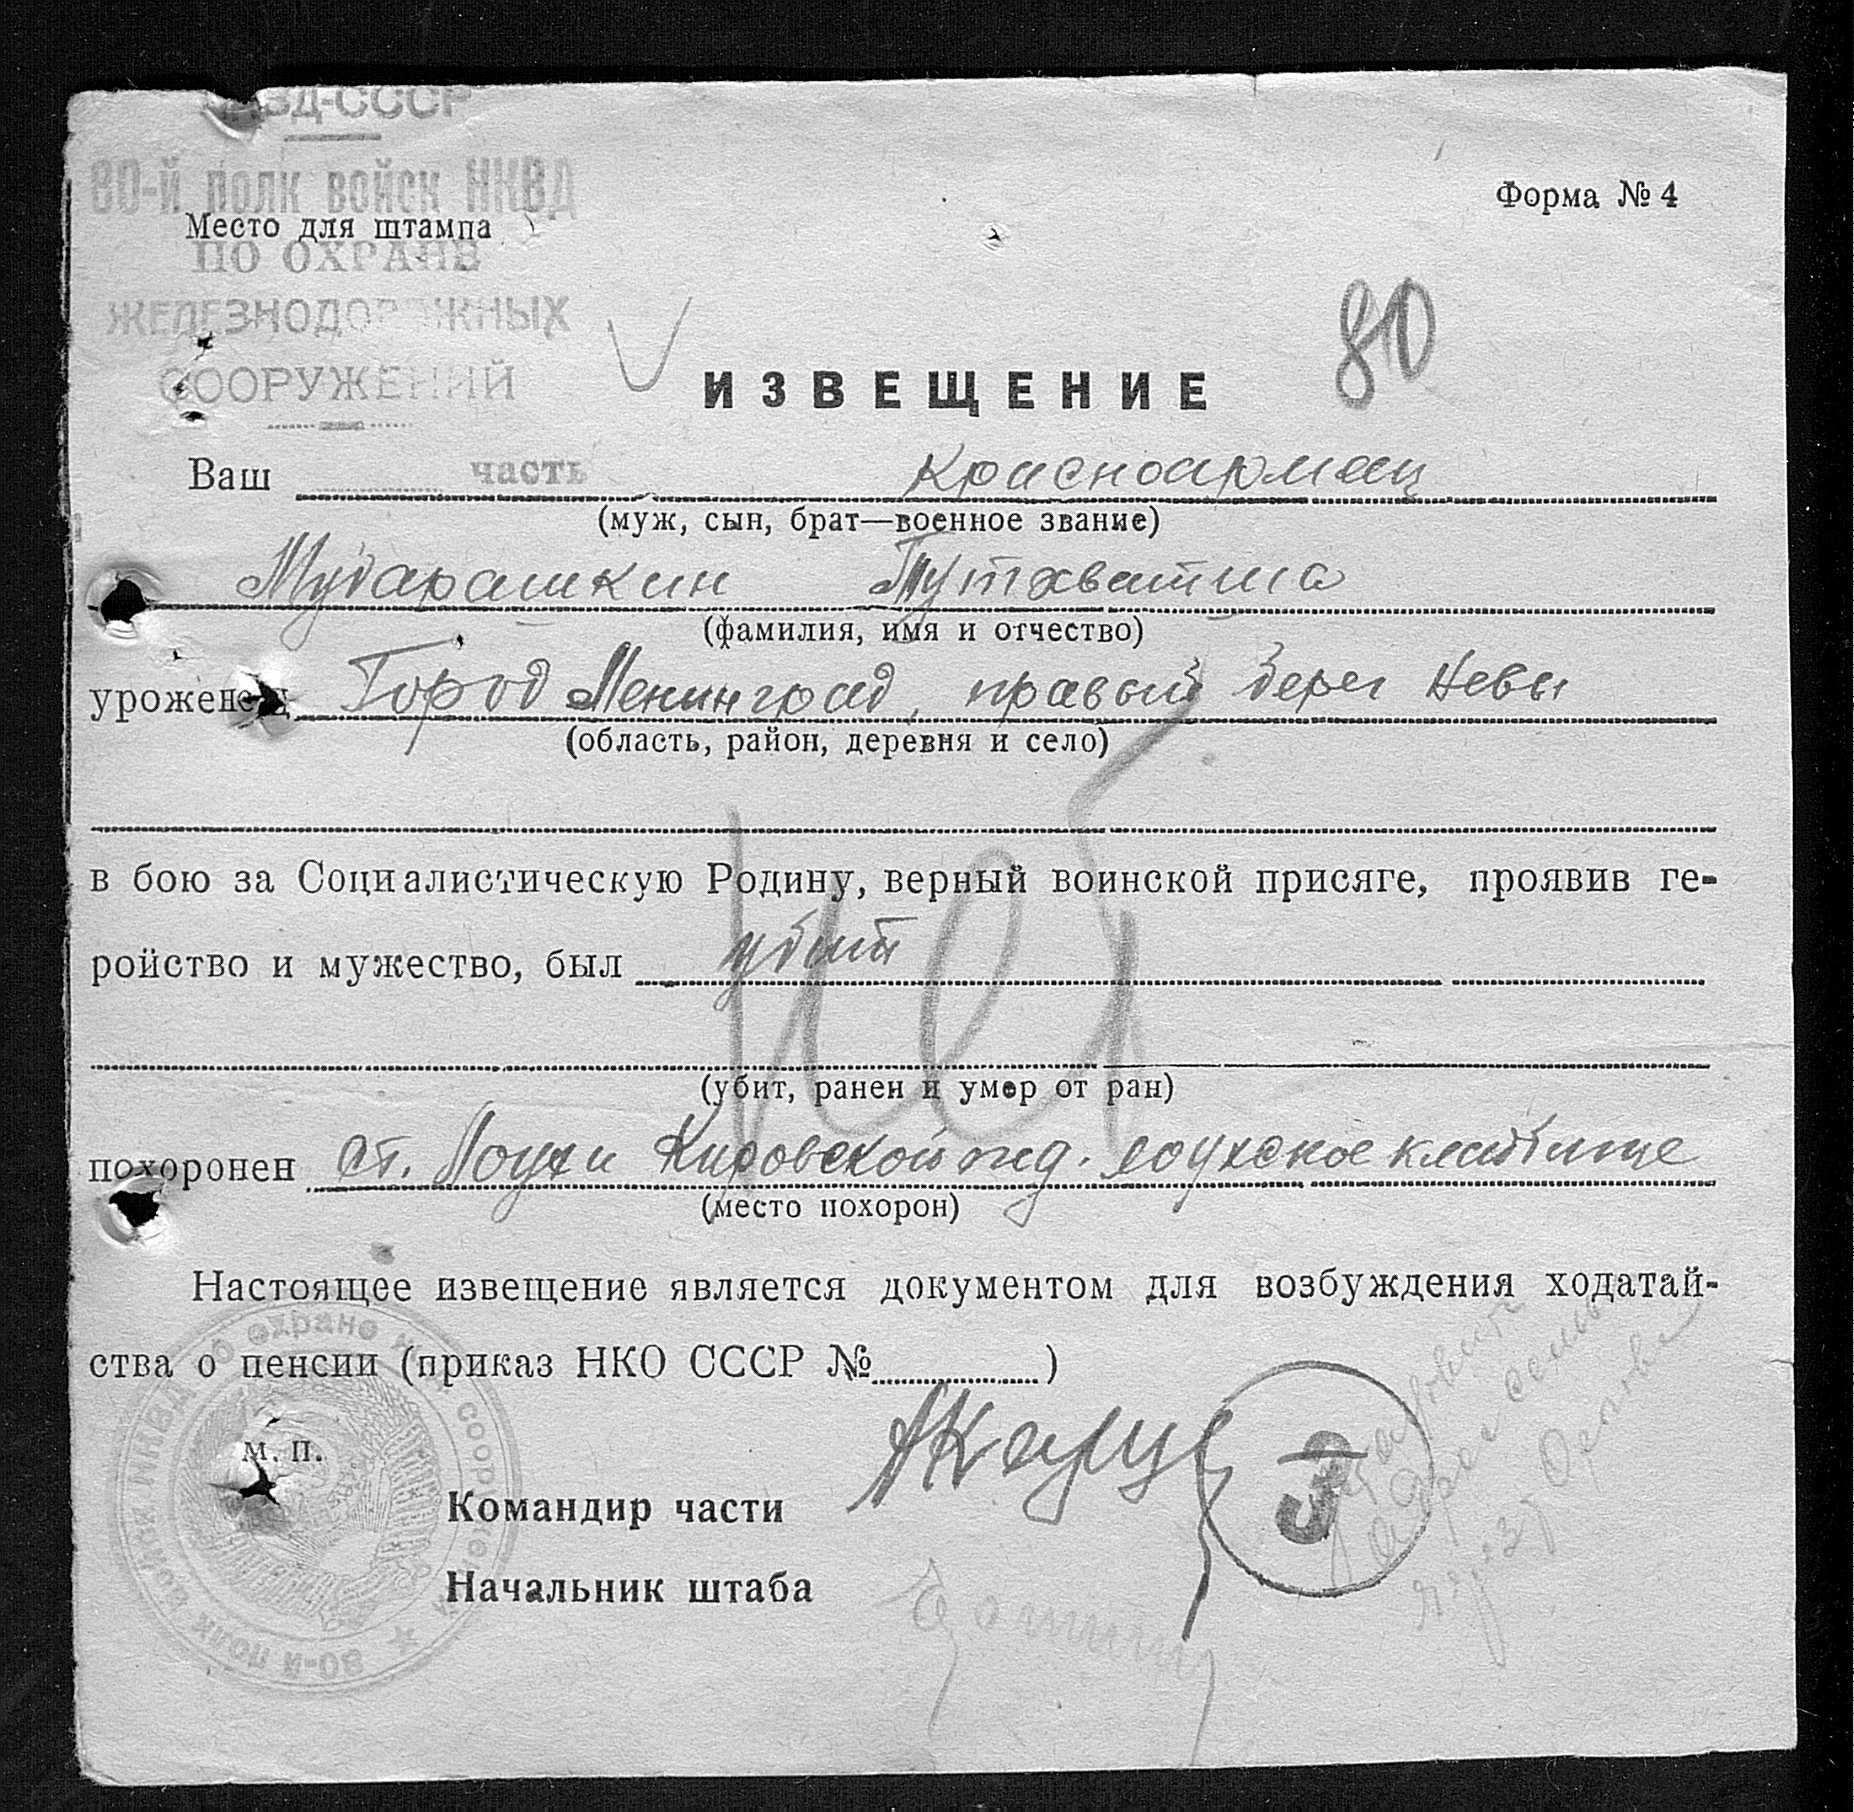 НКВД-СССР
80-й полк войск НКВД
Место для штампа
ПО ОХРАНЕ
ЖЕЛЕЗНОДОРОЖНЫХ
СООРУЖЕНИЙ
Форма № 4
80
ИЗВЕЩЕНИЕ
Ваш часть красноармеец
(муж, сын, брат—военное звание)
Мударашкин
(фамилия, имя и отчество)
уроженец Город Ленинград, правый берег Невы
(область, район, деревня и село)
в бою за Социалистическую Родину, верный воинской присяге, проявив ге-
ройство и мужество, был убит
(убит, ранен и умер от ран)
похоронен ст. Лоухи Кировской жд. лоухское кладбище
(место похорон)
Настоящее извещение является документом для возбуждения ходатай-
ства о пенсии (приказ НКО СССР № )
м. п.
80-й полк войск НКВД по охране ж.д. сооружений
Командир части
3
Начальник штаба